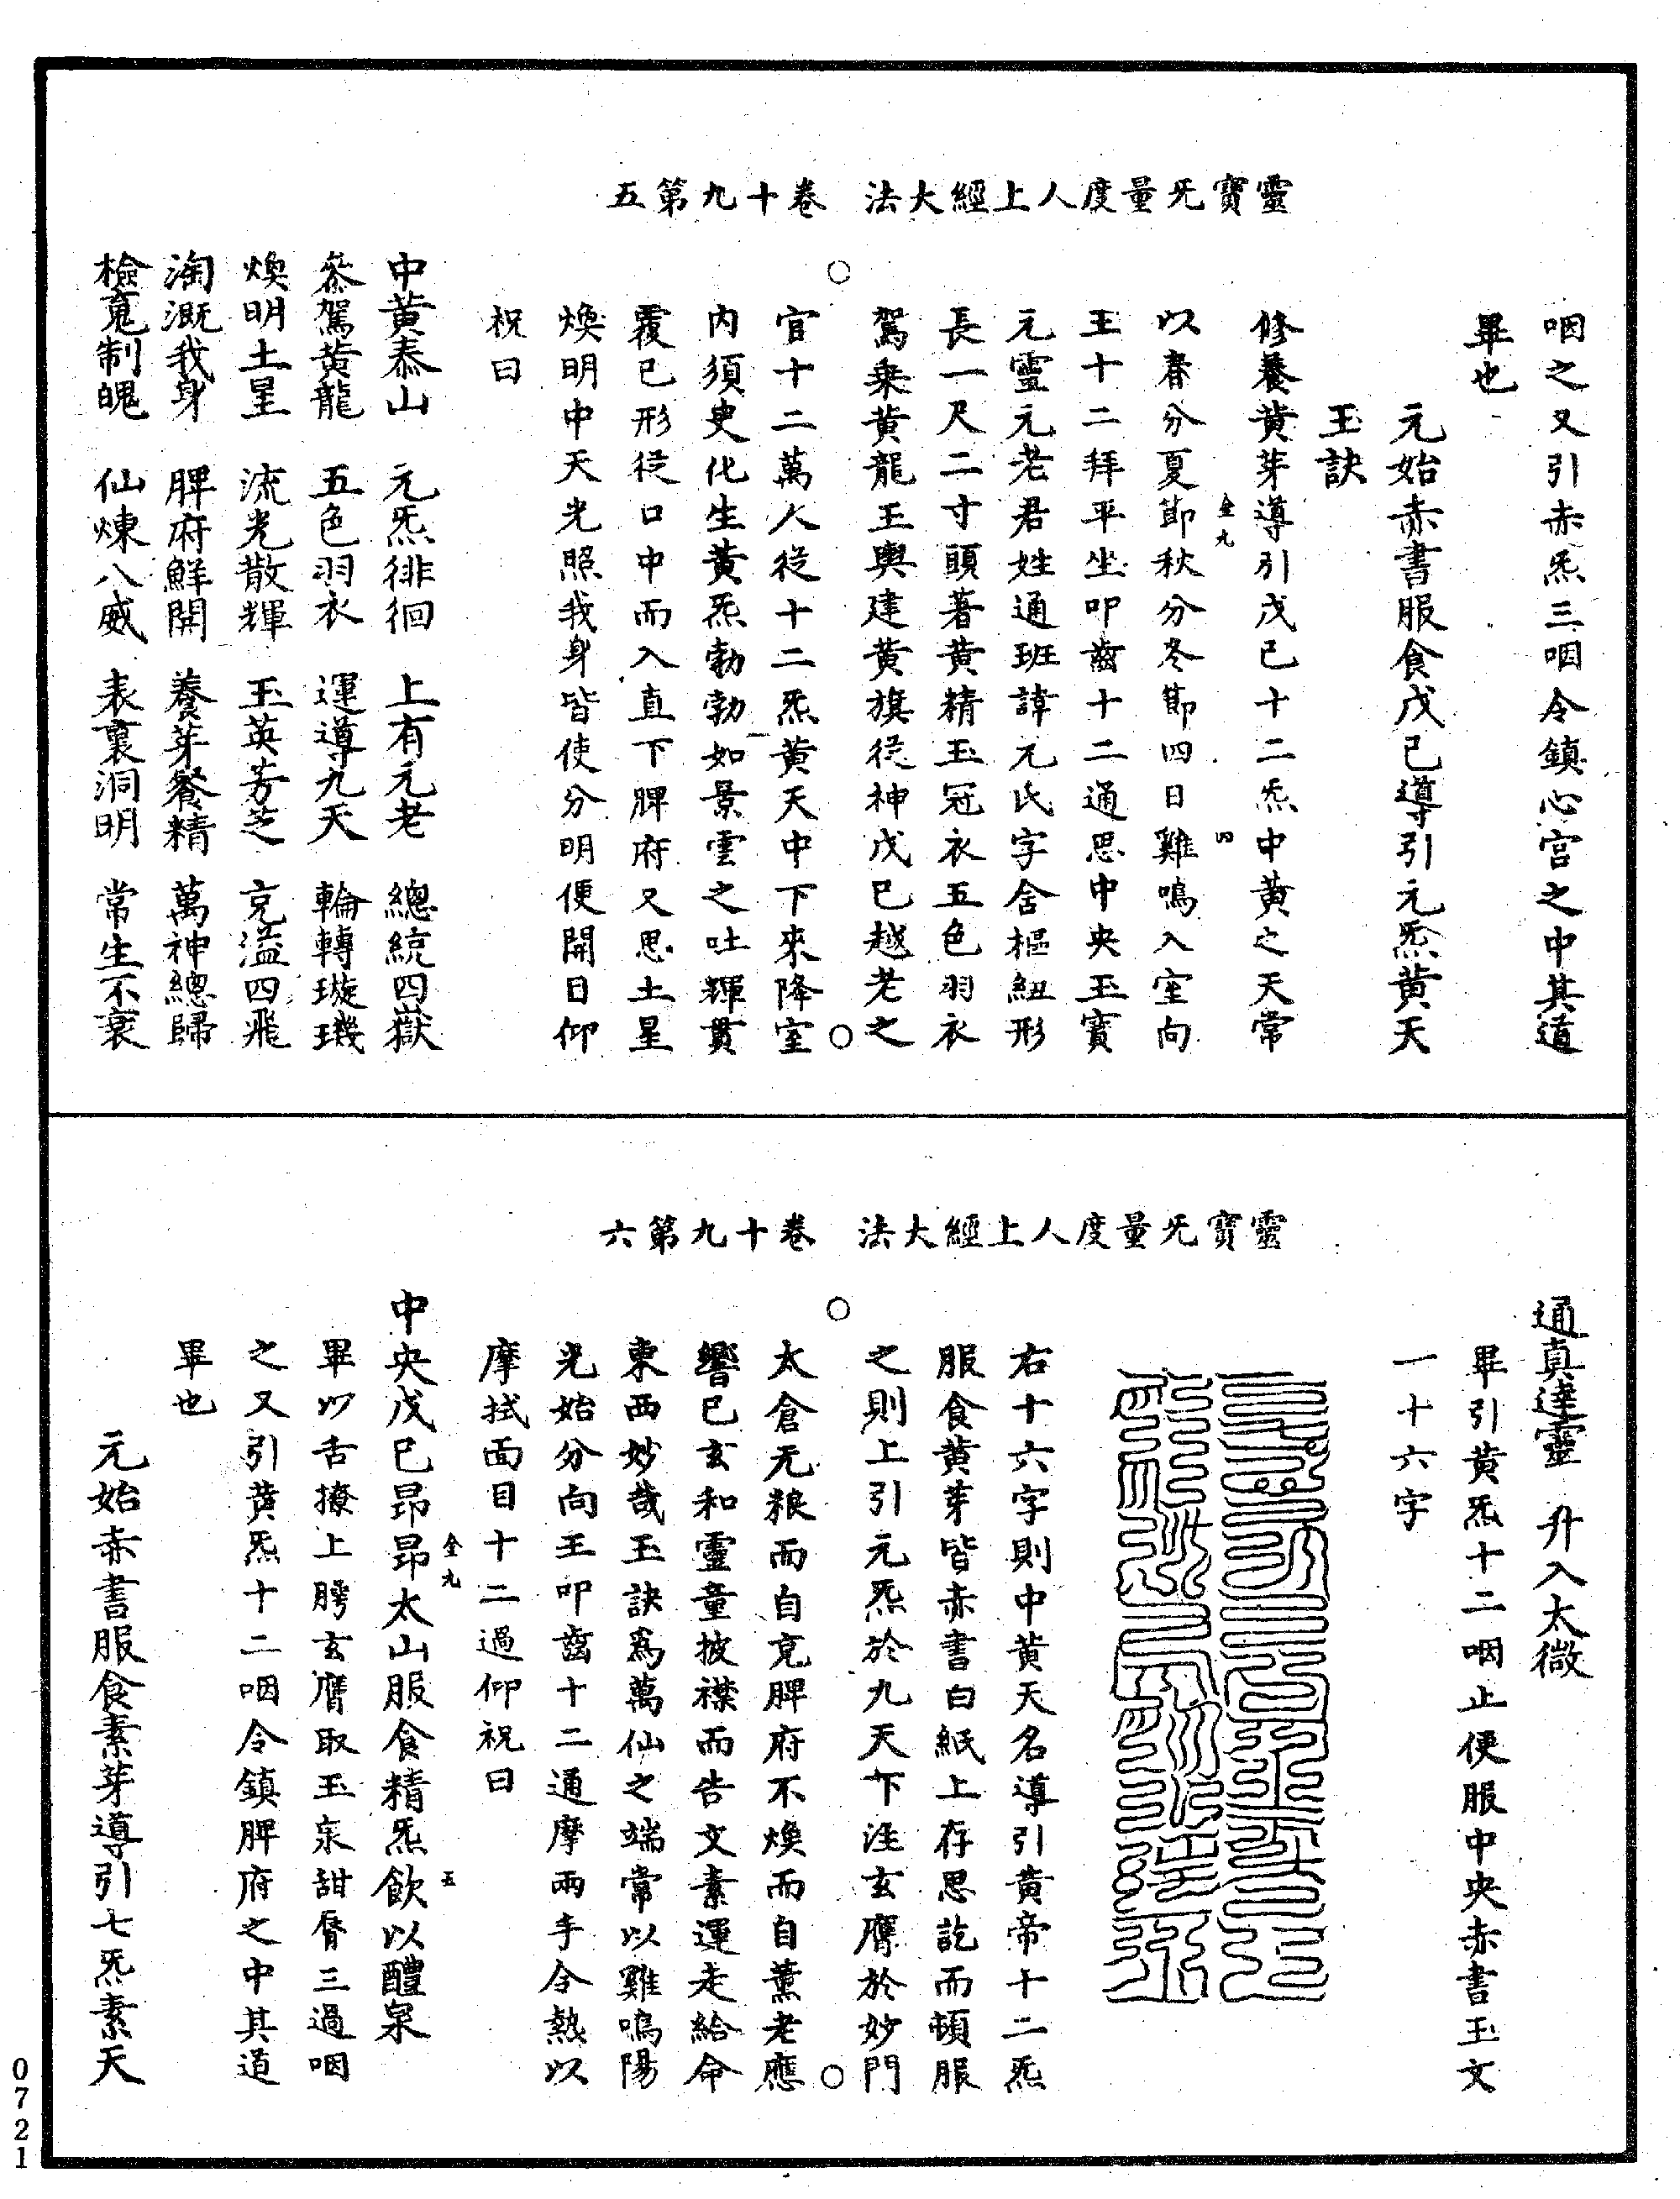 靈寶无量度人上經大法 卷十九第五
咽之又引赤炁三咽令鎮心宮之中其道
畢也
元始赤書服食戊己導引元炁黄天
玉訣
修養黄芽導引戊己十二炁中黄之天常
全九 四
以春分夏節秋分冬節四日雞鳴入室向
王十二拜平坐叩齒十二通思中央玉寳
元靈元老君姓通班諱元氏字舍樞紐形
長一尺二寸頭著黄精玉冠衣五色羽衣
駕乗黄龍玉輿建黄旗從神戊己越老之
官十二萬人從十二炁黄天中下來降室
内須臾化生黄炁勃勃如景雲之吐輝貫
覆己形從口中而入直下脾府又思土星
煥明中天光照我身皆使分明便開目仰
祝曰
中黄泰山 元炁徘徊 上有元老 總統四嶽
叅駕黄龍 五色羽衣 運導九天 輪轉璇璣
煥明土星 流光散輝 玉英芳芝 充溢四飛
淘溉我身 脾府鮮開 養芽餐精 萬神總歸
檢䰟制魄 仙煉八威 表裏洞明 常生不衰
靈寶无量度人上經大法 卷十九第六
通真達靈 升入太微
畢引黄炁十二咽止便服中央赤書玉文
一十六字
右十六字則中黄天名導引黄帝十二炁
服食黄芽皆赤書白紙上存思訖而頓服
之則上引元炁於九天下注玄膺於妙門
太倉无粮而自充脾府不煥而自薰老應
響已玄和靈童披襟而告文素運走給命
東西妙哉玉訣爲萬仙之端常以雞鳴陽
光始分向王叩齒十二通摩兩手令熱以
摩拭面目十二過仰祝曰
中央戊己昂昂太山服食精炁飲以醴泉
全九 五
畢以舌撩上腭玄膺取玉泉甜脣三過咽
之又引黄炁十二咽令鎮脾府之中其道
畢也
元始赤書服食素芽導引七炁素天
0721